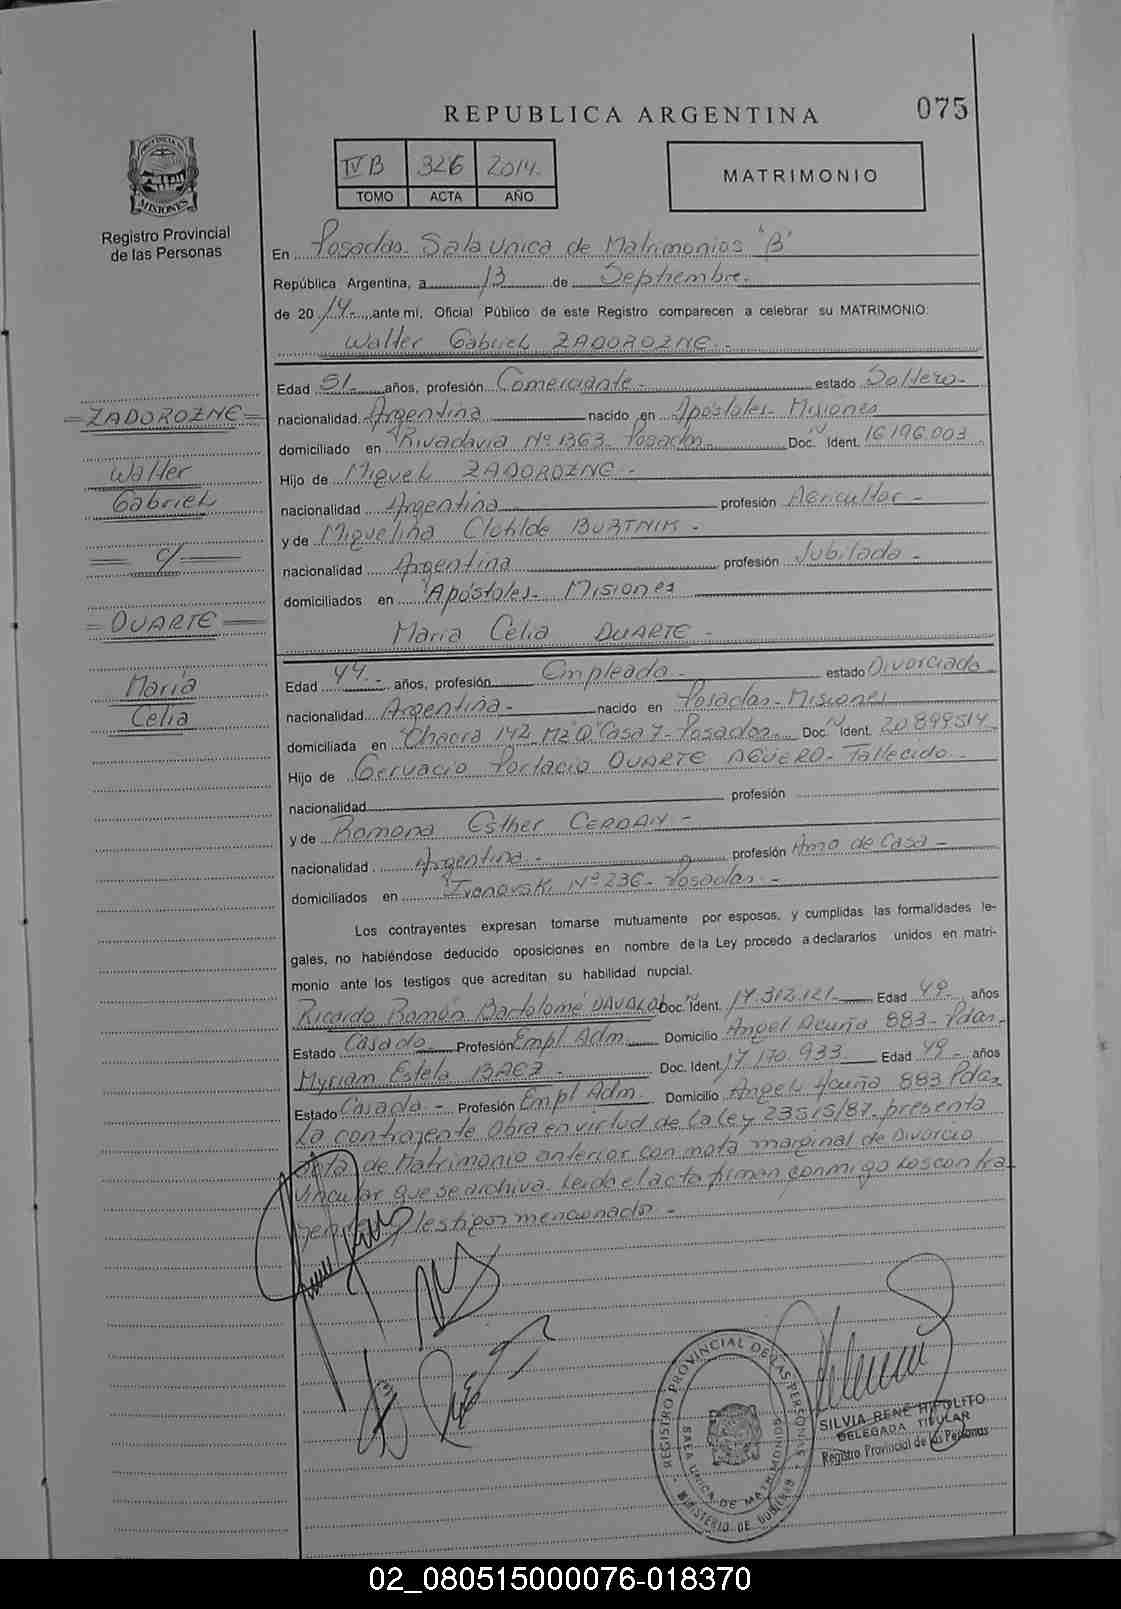 REPUBLICA ARGENTINA
075
PROVINCIA DE
MISIONES
Registro Provincial
de las Personas
IV B 326 2014.
TOMO ACTA AÑO
MATRIMONIO
En Posadas Sala Unica de Matrimonios "B"
República Argentina, a 13 de Septiembre.
de 2014.- ante mí, Oficial Público de este Registro comparecen a celebrar su MATRIMONIO:
Walter Gabriel ZADOROZNE.-
Edad 51.- años, profesión Comerciante.- estado Soltero.-
nacionalidad Argentina nacido en Apóstoles- Misiones
domiciliado en Rivadavia Nº 1363- Posadas.- Doc. N Ident. 16.196.003
Hijo de Miguel ZADOROZNE.-
nacionalidad Argentina profesión Agricultor.-
y de Miguelina Clotilde BURTNIK.-
nacionalidad Argentina profesión Jubilada.-
domiciliados en Apóstoles- Misiones
Maria Celia DUARTE.-
Edad 44.- años, profesión Empleada.- estado Divorciada
nacionalidad Argentina.- nacido en Posadas- Misiones
domiciliada en Chacra 142 Mz "Q" Casa 7- Posadas.- Doc. N Ident. 20.899514
Hijo de Gervacio Portacio DUARTE AGÜERO- Fallecido.-
nacionalidad profesión
y de Ramona Esther CERDAN.-
nacionalidad Argentina.- profesión Ama de Casa.-
domiciliados en Ivanovski Nº 236- Posadas.-
Los contrayentes expresan tomarse mutuamente por esposos, y cumplidas las formalidades le-
gales, no habiéndose deducido oposiciones en nombre de la Ley procedo a declararlos unidos en matri-
monio ante los testigos que acreditan su habilidad nupcial.
Ricardo Ramón Bartolomé DAVALOS Doc. N Ident. 17.312.121.- Edad 49.- años
Estado Casado Profesión Empl Adm Domicilio Angel Acuña 883- Pdas.-
Myriam Estela BAEZ.- Doc. Ident. 17.170.933. Edad 49.- años
Estado Casada.- Profesión Empl Adm. Domicilio Angel Acuña 883 Pdas
La contrayente Obra en virtud de La Ley 23515/87. presenta
Acta de Matrimonio anterior con nota marginal de Divorcio
vincular que se archiva. Leida el acta firman conmigo Los contra
yentes y testigos mencionados.-
=ZADOROZNE=
Walter
Gabriel
= c/ =
=DUARTE=
Maria
Celia
REGISTRO PROVINCIAL DE LAS PERSONAS
SALA UNICA DE MATRIMONIOS
MINISTERIO DE GOBIERNO
SILVIA RENE HIPOLITO
DELEGADA TITULAR
Registro Provincial de las Personas
02_080515000076-018370